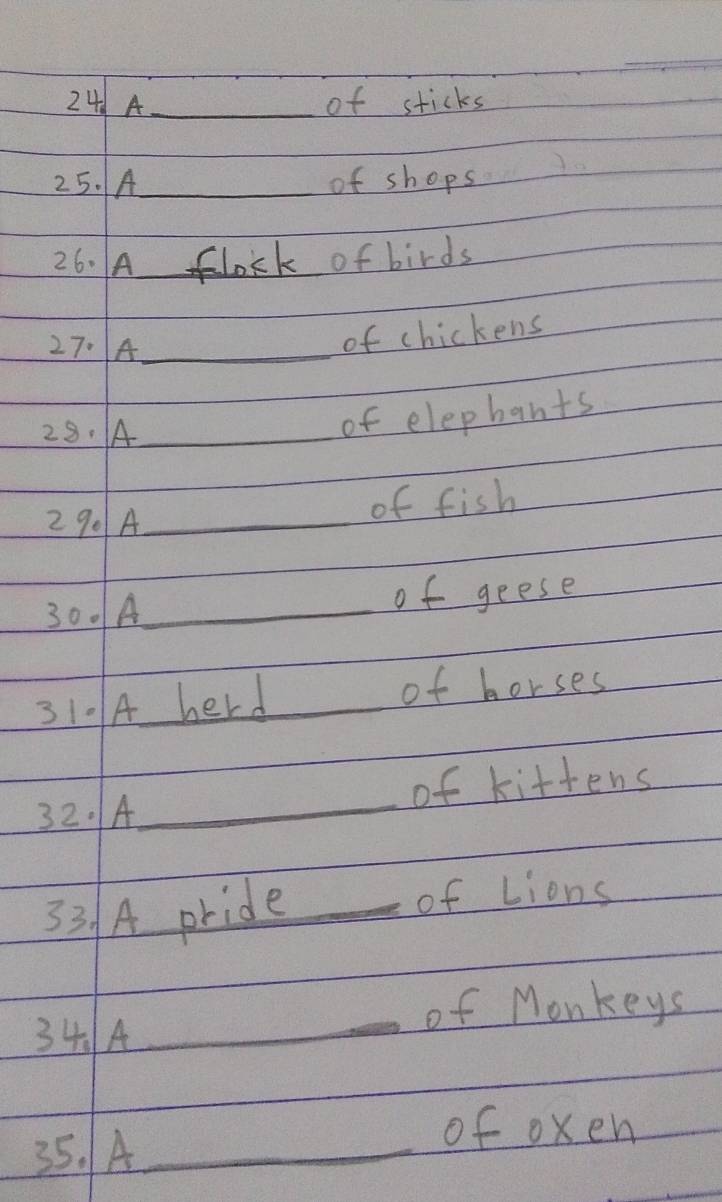 24. A ________ of sticks
25. A ________ of shops
26. A flock of birds
27. A ________ of chickens
28. A ________ of elephants
29. A ________ of fish
30. A ________ of geese
31. A herd ____ of horses
32. A ________ of kittens
33. A pride ____ of Lions
34. A ________ of Monkeys
35. A ________ of oxen